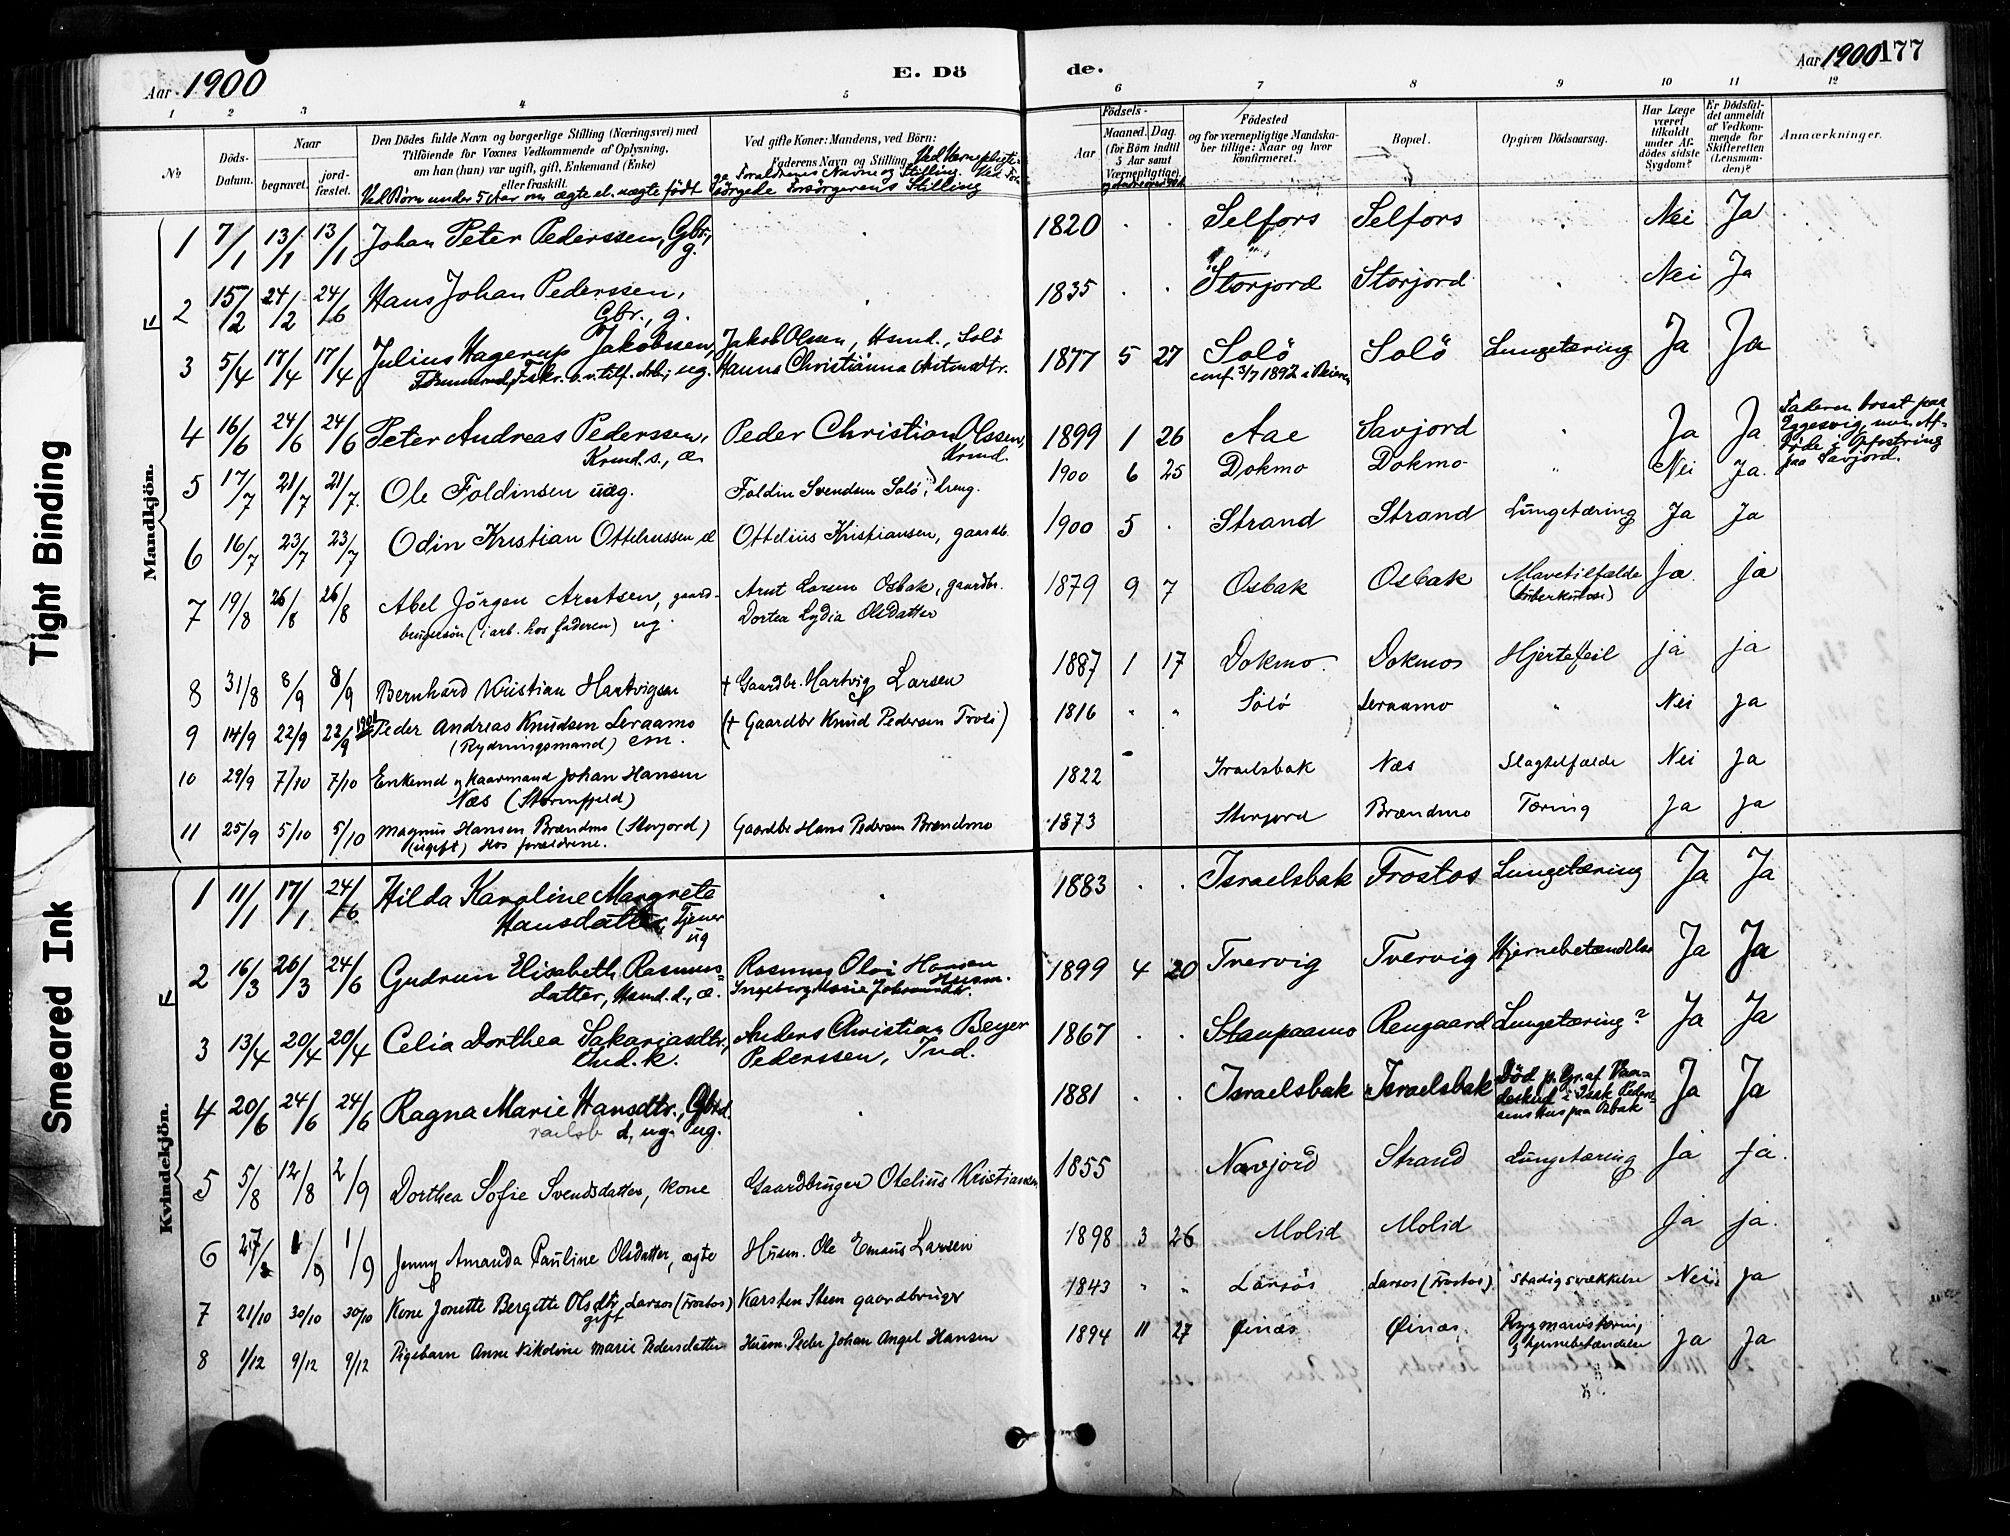 Aar 1900
E. Dö
de.
Aar 1900
177
1 2 3 4 5 6 7 8 9 10 11 12
№
Döds-Datum.
Naar
begravet.
jord-fæstet.
Den Dödes fulde Navn og borgerlige Stilling (Næringsvei) med
Tilföiende for Voxnes Vedkommende af Oplysning,
om han (hun) var ugift, gift, Enkemand (Enke)
eller fraskilt.
Ved Börn under 5 Aar om ægte el. uægte födt
Ved gifte Koner: Mandens, ved Börn:
Faderens Navn og Stilling. Ved Værnepligti-
ge Forældrenes Navne og Stilling. Ved For-
sörgede Forsörgerens Stilling
Födsels-
Aar
Maaned. Dag.
(for Börn indtil
5 Aar samt
Værnepligtige)
Födested
og for værnepligtige Mandska-
ber tillige: Naar og hvor
konfirmeret.
Bopæl.
Opgiven Dödsaarsag.
Har Læge
været
tilkaldt
under Af-
dödes sidste
Sygdom?
Er Dödsfal-
det anmeldt
af Vedkom-
mende for
Skifteretten
(Lensman-
den)?
Anmærkninger.
Mandkjön.
1 7/1 13/1 13/1 Johan Peter Pederssen, Gbr., g. 1820 Selfors Selfors Nei Ja
2 15/2 24/2 24/6 Hans Johan Pederssen, Gbr., g. 1835 Storjord Storjord Nei Ja
3 5/4 17/4 17/4 Julius Hagerup Jakobssen, Jakob Olsen, Hsmd., Solö 1877 5 27 Solö Solö Lungetæring Ja Ja
ug. Hanna Christianna Antonsdtr. conf. 3/7 1892 i Beieren
4 16/6 24/6 24/6 Peter Andreas Pederssen, Krmd.s., æ. Peder Christian Olssen, Krmd. 1899 1 26 Aae Savjord Ja Ja
Faderen bosat paa
Eggesvig, men Af-
döde i Opfostring
paa Savjord.
5 17/7 21/7 21/7 Ole Foldinsen uæg. Foldin Svendsen Solö, dreng. 1900 6 25 Dokmo Dokmo Nei Ja.
6 16/7 23/7 23/7 Odin Kristian Otteliussen æ Ottelius Kristiansen, gaardb. 1900 5 Strand Strand Lungetæring Ja Ja
7 19/8 26/8 26/8 Abel Jörgen Arntsen, gaard- Arnt Larsen Osbak, gaardbr. 1879 9 7 Osbak Osbak Mavetilfælde Ja ja
brugersön (i arb. hos faderen) ug. Dortea Lydia Olsdatter (tuberkulose)
8 31/8 8/9 8/9 Bernhard Kristian Hartvigsen + Gaardbr. Hartvig Larsen 1887 1 17 Dokmo Dokmo Hjertefeil ja ja
9 14/9 22/9 22/9 1901 Peder Andreas Knudsen Leraamo (+ Gaardbr Knud Pedersen Troli) 1816 " " Solö Leraamo " Nei ja
(Rydningsmand) em.
10 29/9 7/10 7/10 Enkemd og kaarmand Johan Hansen 1822 Israelsbak Næs Slagtilfælde Nei ja
Næs (Stormfjeld)
11 25/9 5/10 5/10 Magnus Hansen Brændmo (Storjord) Gaardbr Hans Pedersen Brændmo 1873 Storjord Brændmo Tæring ja ja
(ugift) hos forældrene.
Kvindekjön.
1 11/1 17/1 24/6 Hilda Karoline Margrete 1883 Israelsbak Frostos Lungetæring Ja Ja
Hansdatter, Tjener ug
2 16/3 26/3 24/6 Gudrun Elisabeth Rasmus- Rasmus Olai Hansen Husm. 1899 4 20 Tvervig Tvervig Hjernebetændelse Ja Ja
datter, Hsmd.d., æ. Ingeborg Marie Johannesdtr.
3 13/4 20/4 20/4 Celia Dorthea Sakariasdtr., Anders Christian Beyer 1867 Staupaamo Rengaard Lungetæring? Ja Ja
Ind.k. Pederssen, Ind.
4 20/6 24/6 24/6 Ragna Marie Hansdtr., Gbrd. 1881 Israelsbak Israelsbak Död p. Gr. af Vaa- Ja Ja
d, ug. ug. deskud i Isak Peders-
sens Hus paa Osbak
5 5/8 12/8 2/9 Dorthea Sofie Svendsdatter, kone Gaardbruger Otelius Kristiansen 1855 Navjord Strand Lungetæring Ja ja.
6 27/8 1/9 1/9 Jenny Amanda Pauline Olsdatter, ægte Husm. Ole Emaus Larsen 1898 3 26 Molid Molid Ja ja.
7 21/10 30/10 30/10 Kone Jonette Bergette Olsdtr, Larsos (Frostos) Karsten Steen gaardbruger 1843 " " Larsos Larsos (Frostos) Stadig svækkelse Nei ja
gift
8 1/12 9/12 9/12 Pigebarn Anne Nikoline Marie Pedersdatter Husm. Peder Johan Angel Hansen 1894 11 27 Öinæs Öinæs Rygmarvstæring ja ja
og hjernebetændelse
Tight Binding
Smeared Ink